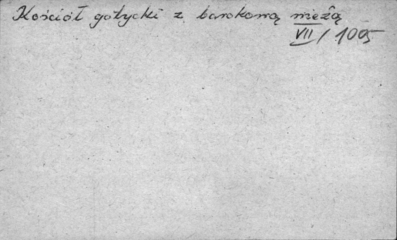 Kościół gotycki z barokową wieżą
VII / 1005